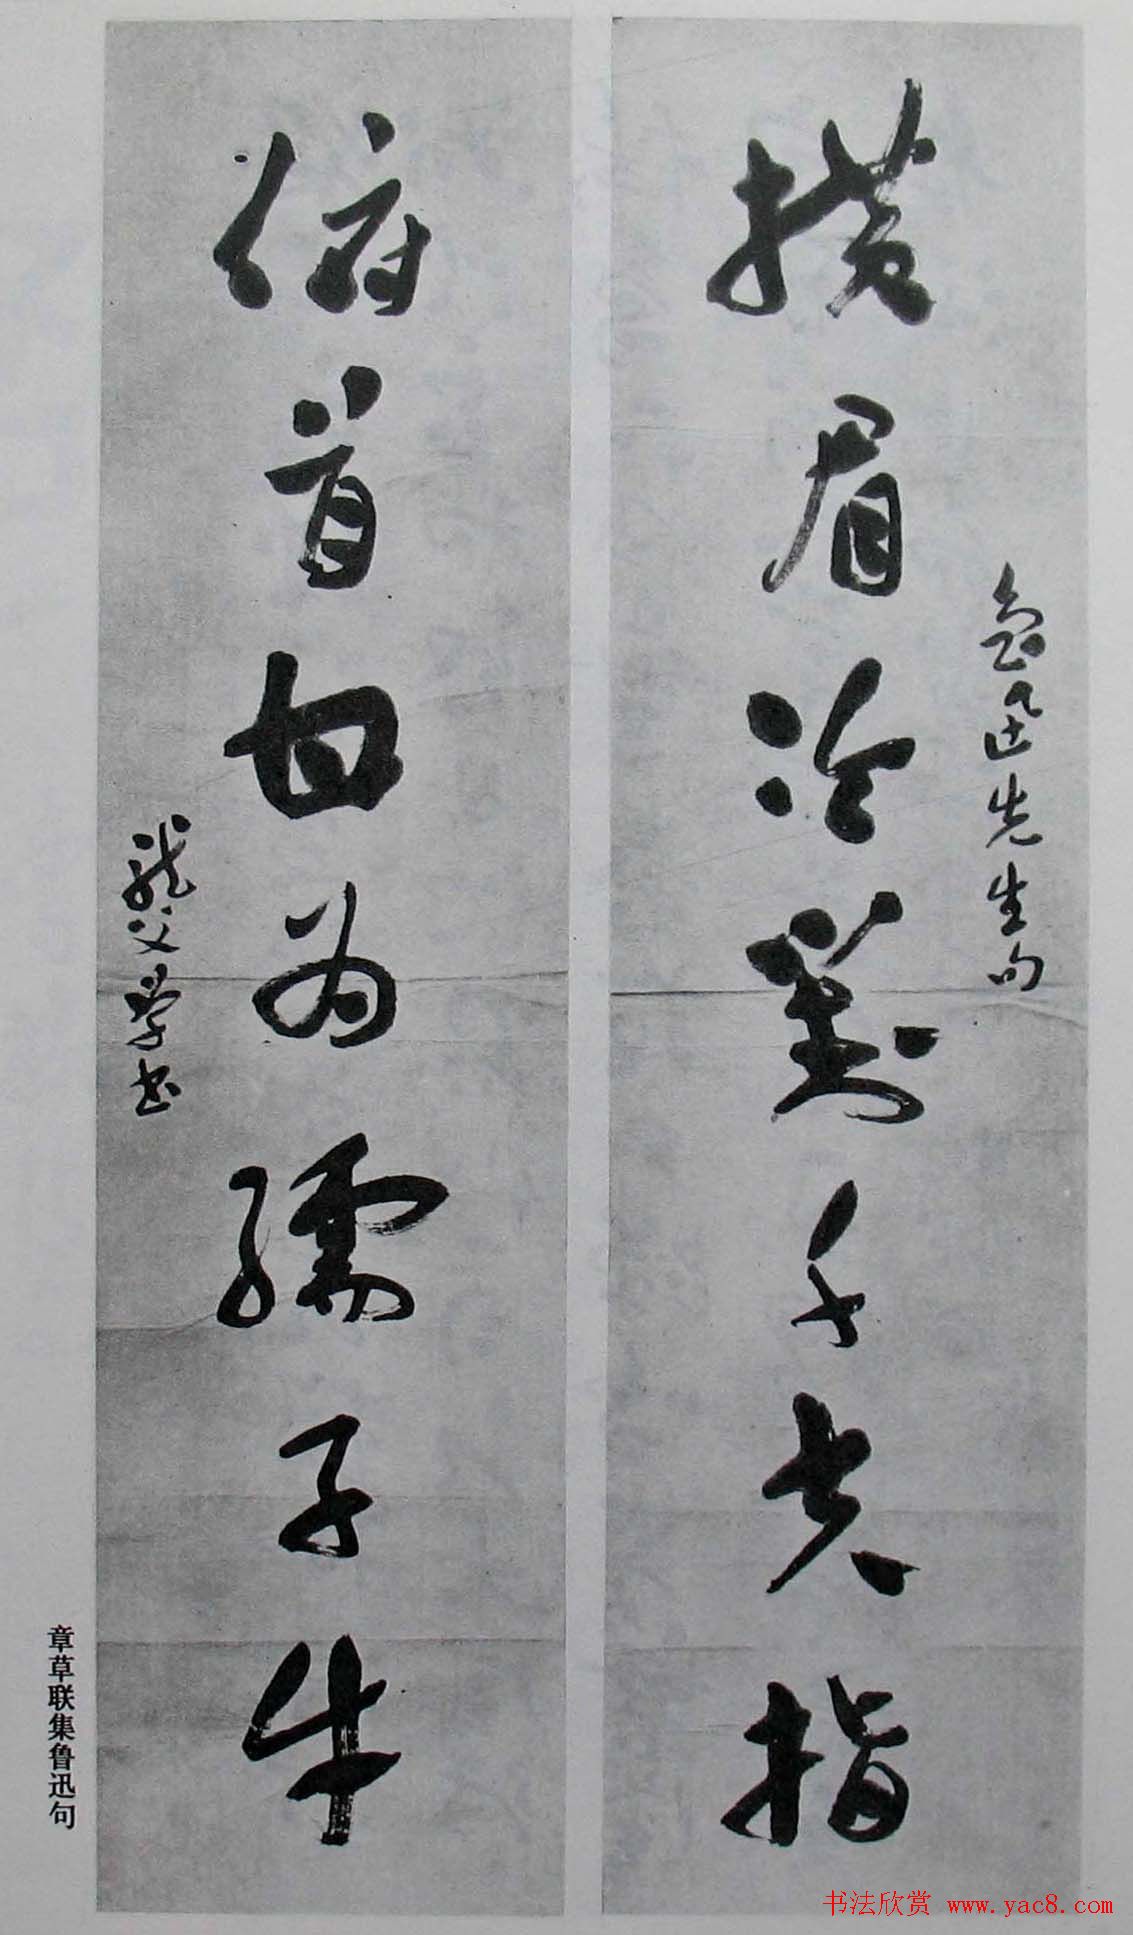 魯迅先生句
横眉冷對千夫指
俯首甘为孺子牛
龍父學书
章草联集鲁迅句
书法欣赏 www.yac8.com